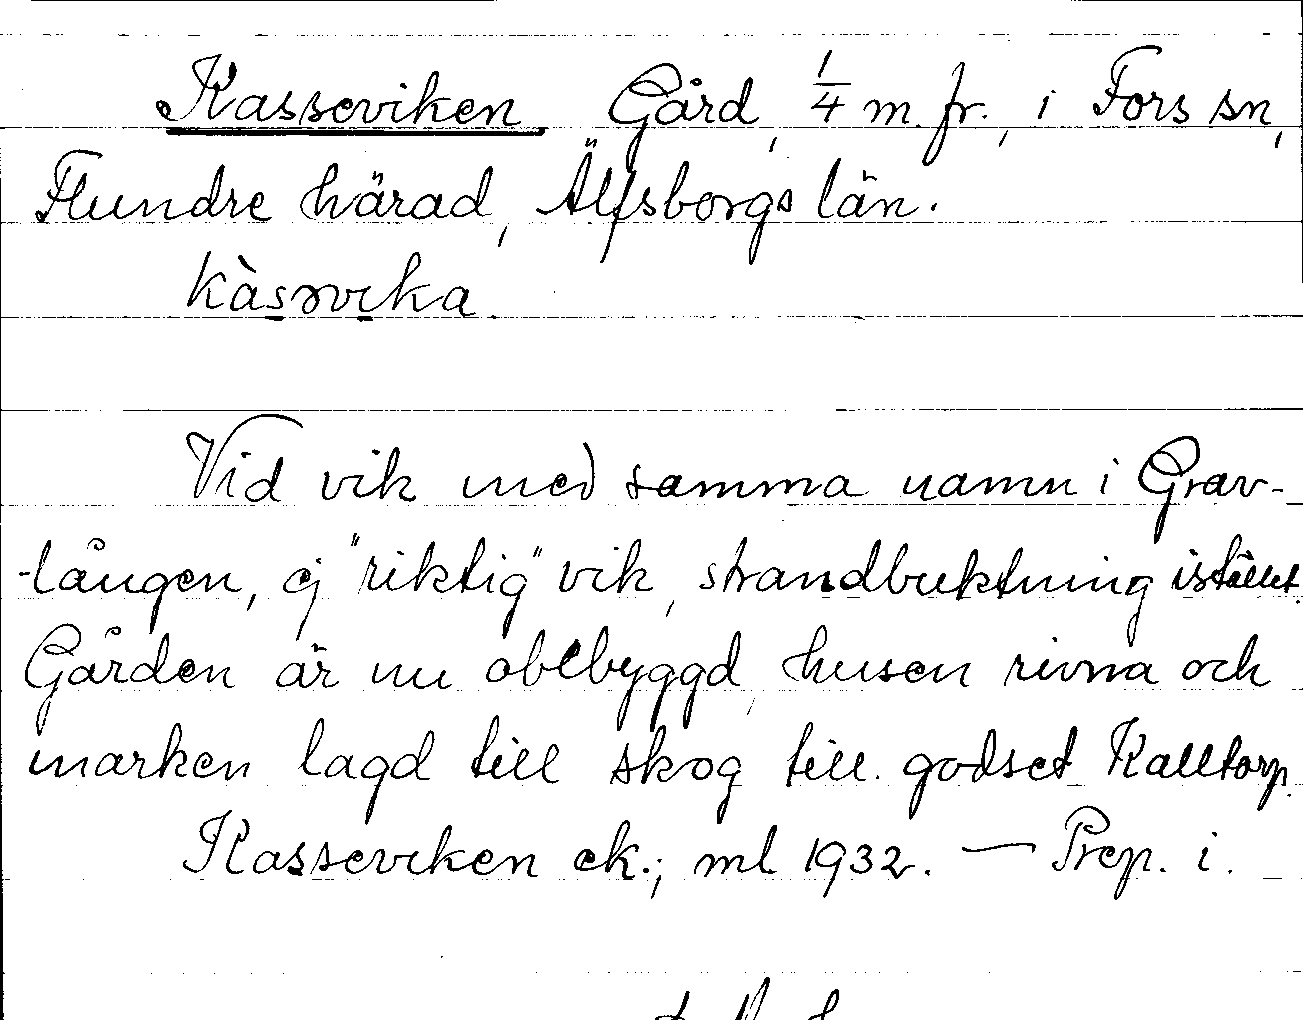 Kasseviken Gård, 1/4 m. fr., i Fors sn,
Flundre härad, Älfsborgs län.
kàsəvika.
Vid vik med samma namn i Grav-
-lången, ej "riktig" vik, strandbuktning istället.
Gården är nu obebyggd, husen rivna och
marken lagd till skog till godset Kalltorp.
Kasseviken ek.; ml 1932. — Prep. i.